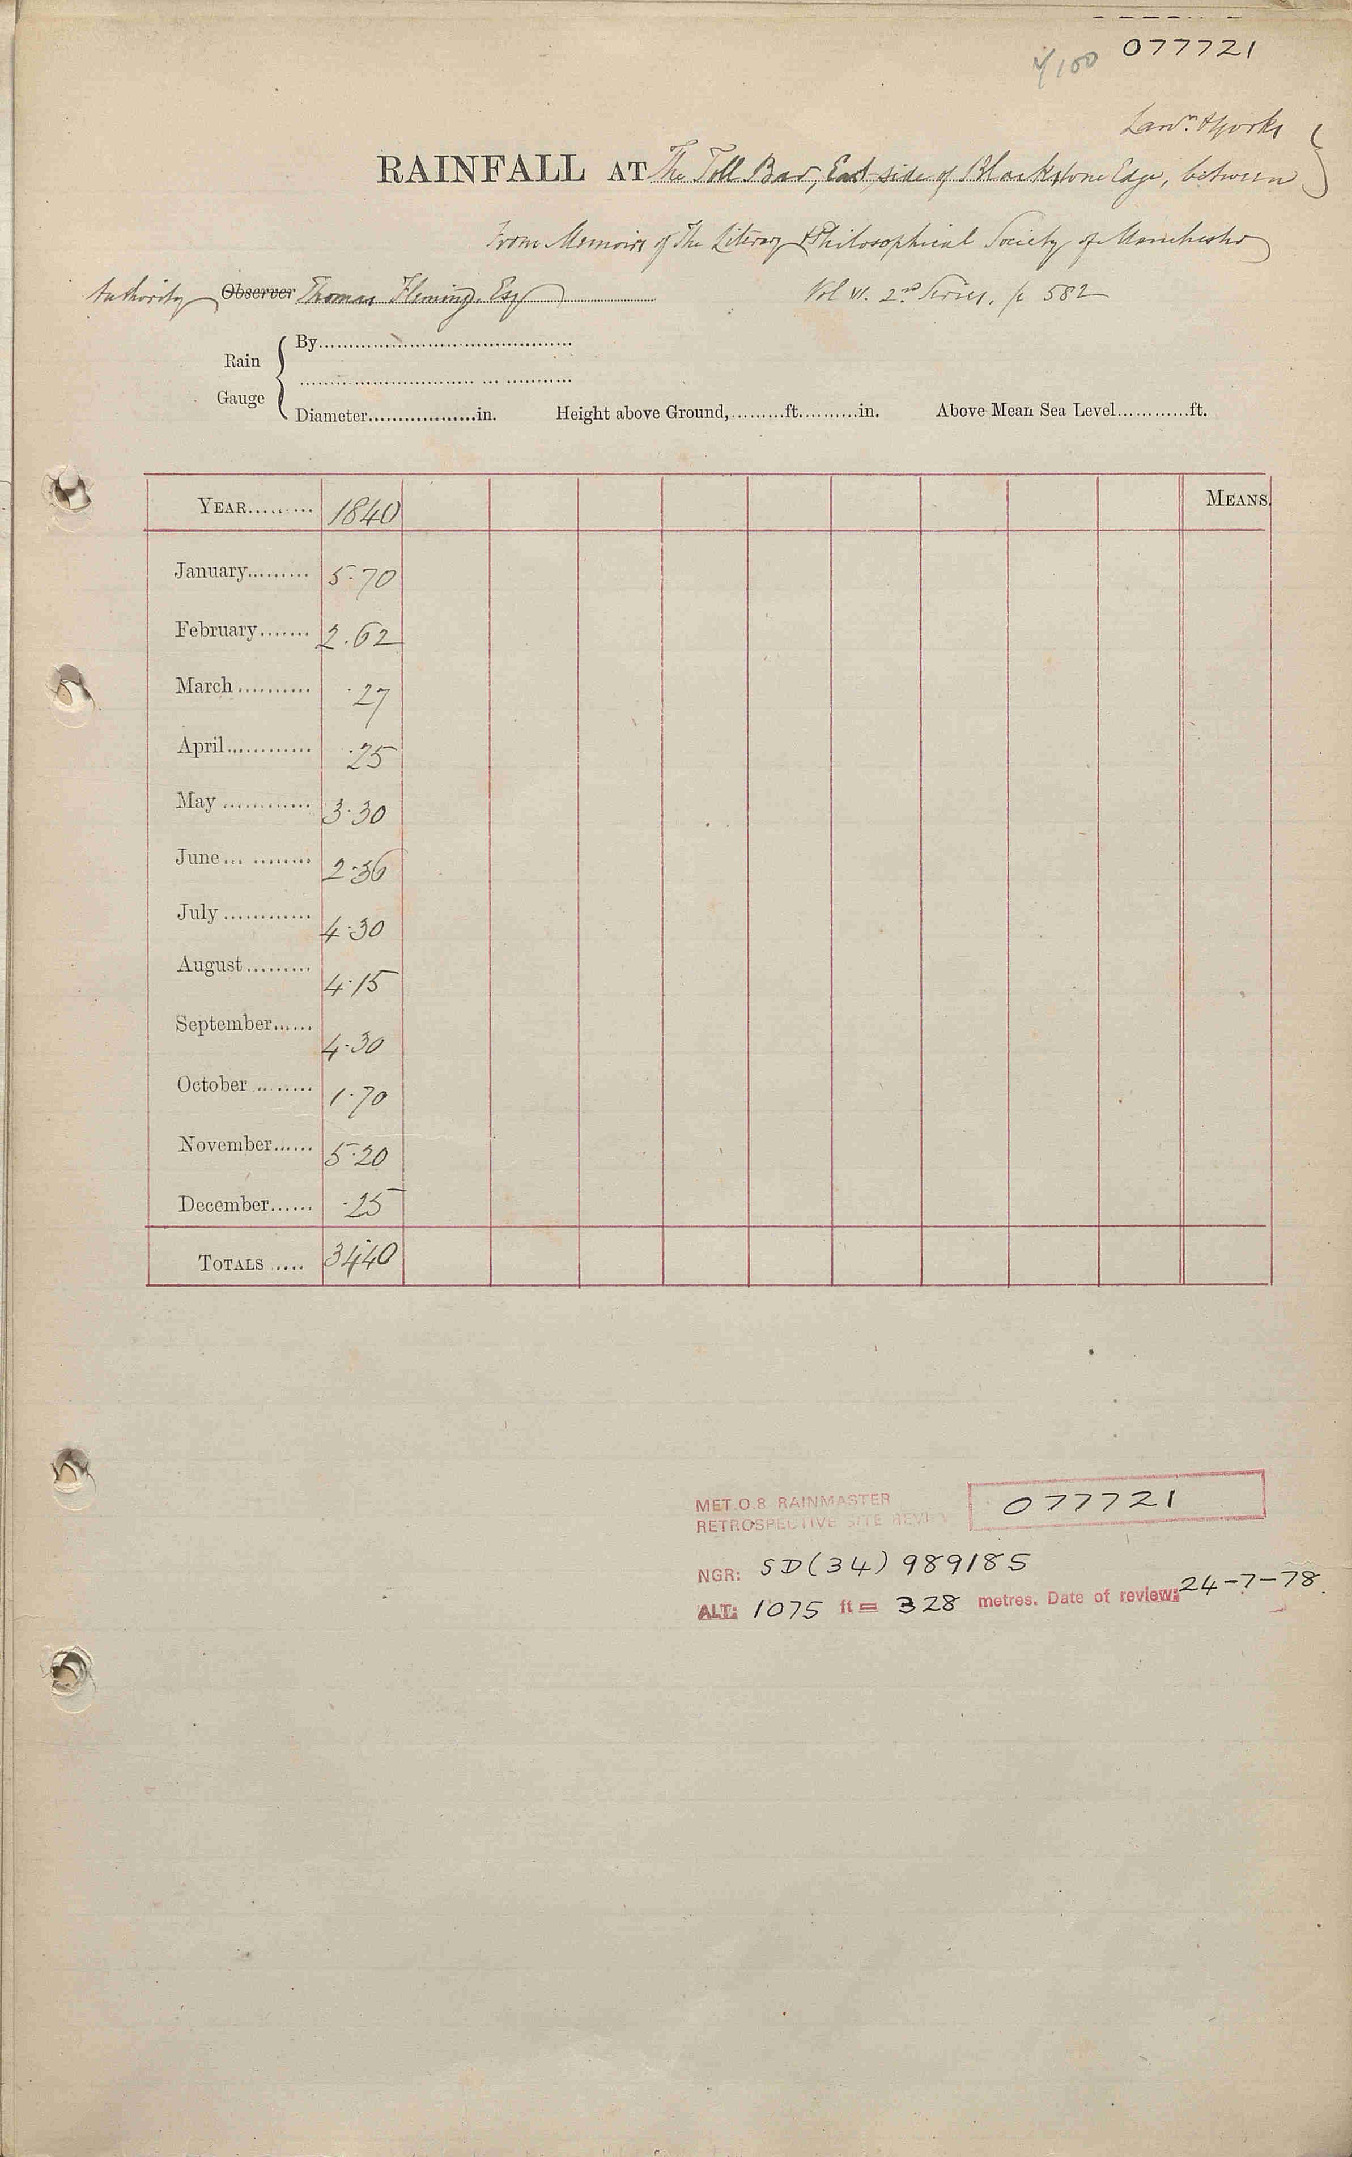 077721
4/100
Lanc. & Yorks
RAINFALL AT The Toll Bar, East side of Blackstone Edge, between
From Memoirs of The Literary & Philosophical Society of Manchester
Authority Observer Thomas Fleming, Esq Vol VI. 2nd Series, p 582
Rain Gauge
By
Diameter..................in. Height above Ground,.........ft..........in. Above Mean Sea Level............ft.
YEAR......... 1840 MEANS.
January......... 5.70
February....... 2.62
March.......... .27
April............ .25
May ............ 3.30
June... ........ 2.36
July ............ 4.30
August......... 4.15
September...... 4.30
October ......... 1.70
November...... 5.20
December...... .25
TOTALS ..... 34.40
MET.O.8. RAINMASTER
RETROSPECTIVE SITE REVIEW 077721
NGR: SD(34) 989185
ALT: 1075 ft = 328 metres. Date of review: 24-7-78.